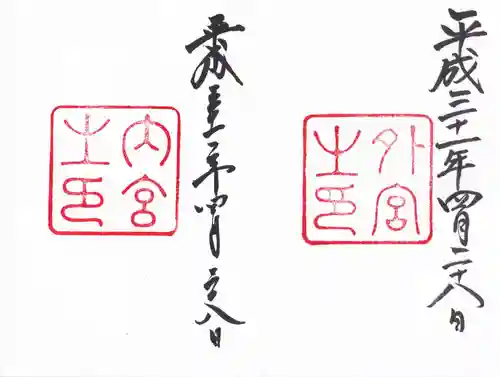 平成三十一年四月二十八日
外宮
之印
平成三十一年四月二十八日
内宮
之印